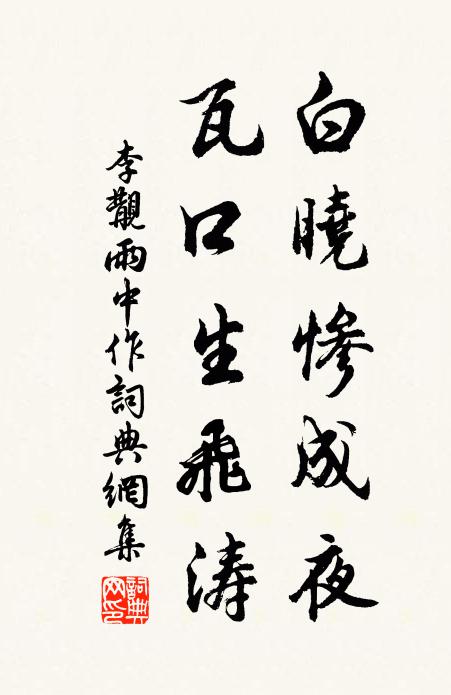 白曉慘成夜
瓦口生飛濤
李覯雨中作詞典網集
詞典網印